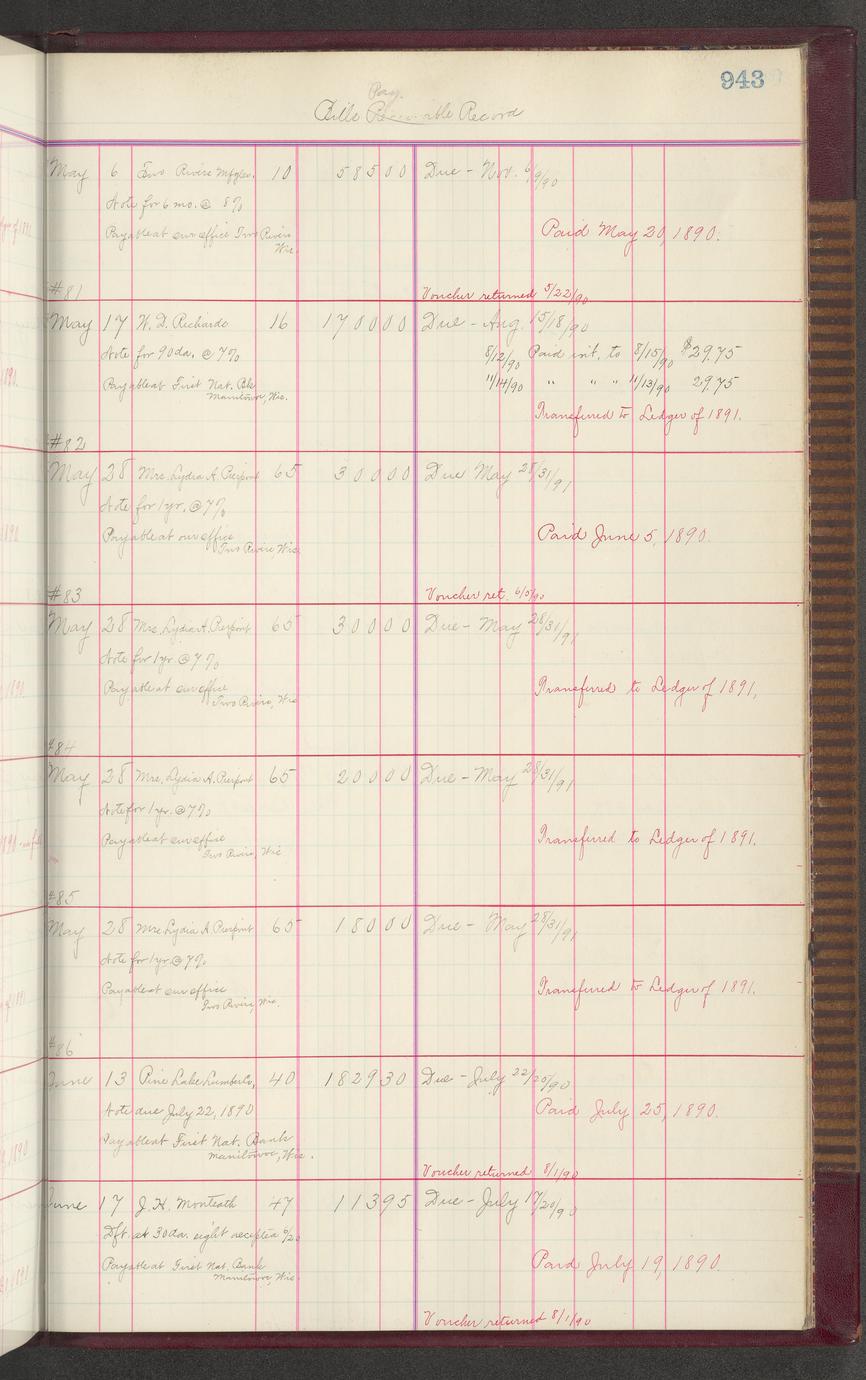 943
Pay.
Bills Receivable Record
May 6 Two Rivers Mfg Co. 10 585 00 Due - Nov. 6/9/90
Note for 6 mo. @ 8%
Payable at our office Two Rivers
Wis.
Paid May 20, 1890.
#81 Voucher returned 5/22/90
May 17 W. D. Richards 16 1700 00 Due - Aug. 15/18/90
Note for 90 da. @ 7% 8/12/90 Paid int. to 8/15/90 $29.75
Payable at First Nat. Bk 11/14/90 " " " 11/13/90 29.75
Manitowoc, Wis.
Transferred to Ledger of 1891.
#82
May 28 Mrs. Lydia A. Pierpont 65 300 00 Due May 28/31/91
Note for 1 yr. @ 7%
Payable at our office
Two Rivers, Wis.
Paid June 5, 1890.
#83 Voucher ret. 6/5/90
May 28 Mrs. Lydia A. Pierpont 65 300 00 Due - May 28/31/91
Note for 1 yr @ 7%
Payable at our office
Two Rivers, Wis
Transferred to Ledger of 1891.
#84
May 28 Mrs. Lydia A. Pierpont 65 200 00 Due - May 28/31/91
Note for 1 yr. @ 7%
Payable at our office
Two Rivers, Wis
Transferred to Ledger of 1891.
#85
May 28 Mrs Lydia A Pierpont 65 180 00 Due - May 28/31/91
Note for 1 yr. @ 7%
Payable at our office
Two Rivers, Wis
Transferred to Ledger of 1891.
#86
June 13 Pine Lake Lumber Co. 40 1829 30 Due - July 22/25/90
Note due July 22, 1890
Paid July 25, 1890.
Payable at First Nat. Bank
Manitowoc, Wis.
Voucher returned 8/1/90
June 17 J. H. Monteath 47 113 95 Due - July 17/20/90
Dft. at 30 da. sight accepted 6/20
Payable at First Nat. Bank
Manitowoc, Wis.
Paid July 19, 1890.
Voucher returned 8/1/90